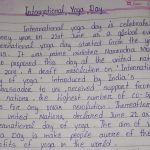 International Yoga Day
International yoga day is celebrate
every year in 21st June as a global e
International yoga day started from the y
It was prime minister Narendra Mo
proposed this day at the united nat
2014. A draft resolution on Internation
of yoga introduced by India's
ambassador to un, received support from
Nations, the highest number of co-
for any such resolution. Thereafter,
United Nations, declared June 21 as
International day of yoga. The aim of
Yoga Day is make people aware of the
benefits of yoga in the world